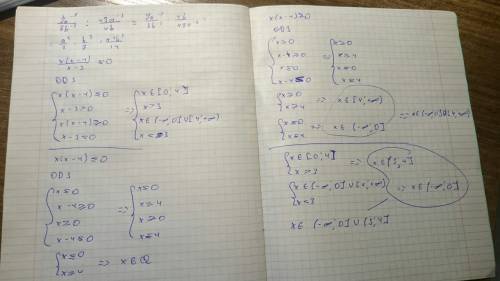 x(x-4)/(x-3) ≤ 0
ODS
x(x-4) ≤ 0
x-3 > 0
x(x-4) ≥ 0
x-3 < 0
=> x ∈ [0; 4]
x > 3
x ∈ (-∞, 0] ∪ [4, +∞)
x < 3
x(x-4) ≤ 0
ODS
x ≤ 0
x-4 ≥ 0
x ≥ 0
x-4 ≤ 0
=> x ≤ 0
x ≥ 4
x ≥ 0
x ≤ 4
x ≤ 0
x ≥ 4
=> x ∈ Q
x(x-4) ≥ 0
ODS
x ≥ 0
x-4 ≥ 0
x ≤ 0
x-4 ≤ 0
=> x ≥ 0
x ≥ 4
x ≤ 0
x ≤ 4
x ≥ 0
x ≥ 4
=> x ∈ [4, +∞)
x ≤ 0
x ≤ 4
=> x ∈ (-∞, 0]
=> x ∈ (-∞, 0] ∪ [4, +∞)
x ∈ [0; 4]
x > 3
=> x ∈ (3, 4]
x ∈ (-∞, 0] ∪ [4, +∞)
x < 3
=> x ∈ (-∞, 0]
x ∈ (-∞, 0] ∪ (3, 4]